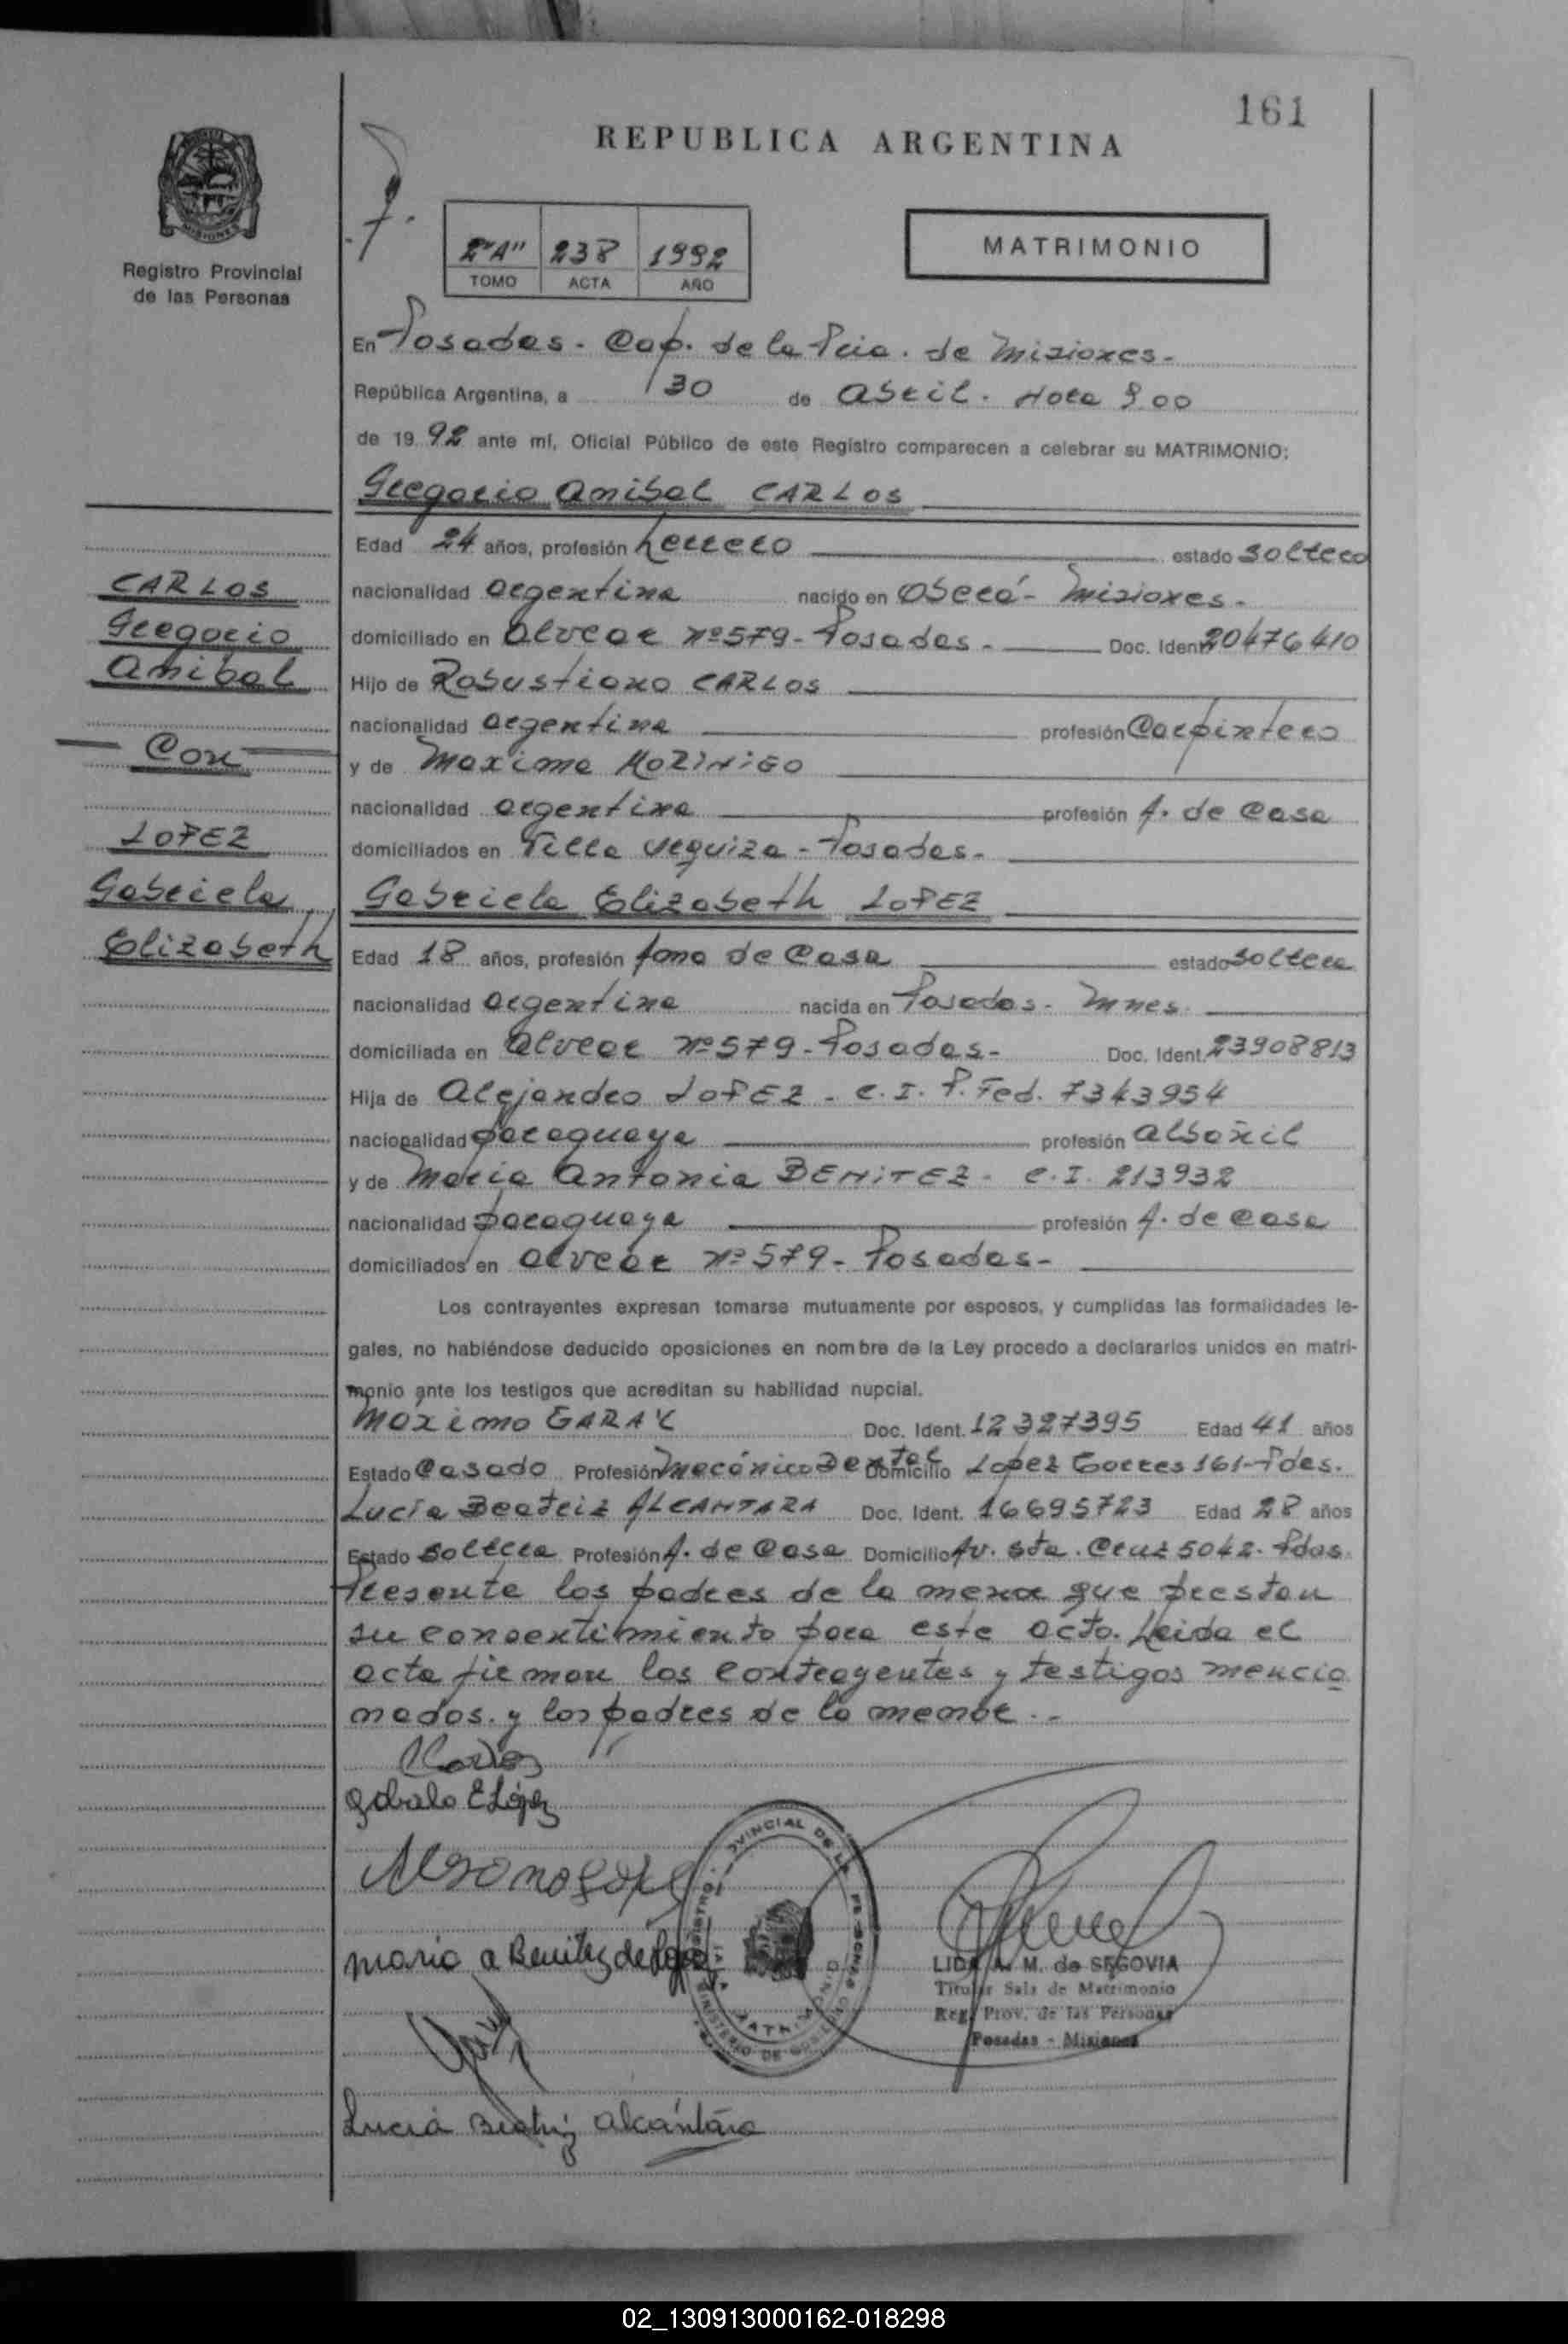 161
REPUBLICA ARGENTINA
Registro Provincial
de las Personas
2"A" 238 1992
TOMO ACTA AÑO
MATRIMONIO
En Posadas - Cap. de la Pcia. de Misiones-
República Argentina, a 30 de Abril. Hora 9.00
de 1992 ante mí, Oficial Público de este Registro comparecen a celebrar su MATRIMONIO:
Gregorio Anibal CARLOS
Edad 24 años, profesión herrero estado soltero
nacionalidad argentina nacido en Oberá- Misiones-
domiciliado en Alvear nº 579- Posadas- Doc. Ident. 20476410
Hijo de Robustiano CARLOS
nacionalidad argentina profesión Carpintero
y de Maxima MORINIGO
nacionalidad argentina profesión A. de Casa
domiciliados en Villa Urquiza - Posadas-
Gabriela Elizabeth LOPEZ
Edad 18 años, profesión Ama de Casa estado soltera
nacionalidad argentina nacida en Posadas- Mnes.
domiciliada en Alvear nº 579- Posadas- Doc. Ident. 23908813
Hija de Alejandro LOPEZ - C.I. P. Fed. 7343954
nacionalidad paraguaya profesión albañil
y de Maria Antonia BENITEZ- C.I. 213932
nacionalidad paraguaya profesión A. de Casa
domiciliados en Alvear nº 579- Posadas-
Los contrayentes expresan tomarse mutuamente por esposos, y cumplidas las formalidades le-
gales, no habiéndose deducido oposiciones en nombre de la Ley procedo a declararlos unidos en matri-
monio ante los testigos que acreditan su habilidad nupcial.
Máximo GARAY Doc. Ident. 12327395 Edad 41 años
Estado Casado Profesión Mecánico Dental Domicilio Lopez Torres 161-Pdas.
Lucía Beatriz ALCANTARA Doc. Ident. 16695723 Edad 28 años
Estado soltera Profesión A. de Casa Domicilio Av. Sta. Cruz 5042. Pdas.
Presente los padres de la menor que prestan
su consentimiento para este acto. Leida el
acta firman los contrayentes y testigos mencio
nados. y los padres de la menor.-
CARLOS
Gregorio
Anibal
Con
LOPEZ
Gabriela
Elizabeth
Carlos
E López
Maria a Benitez de Lopez
LIDA A. M. de SEGOVIA
Titular Sala de Matrimonio
Reg. Prov. de las Personas
Posadas - Misiones
Lucia Beatriz Alcántara
02_130913000162-018298